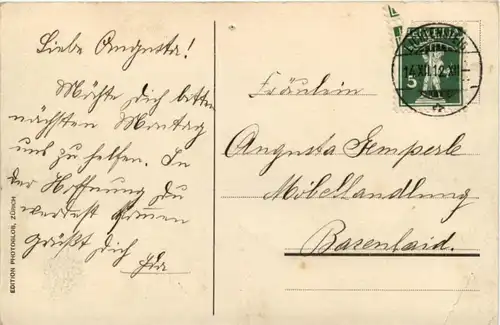 Liebe Augusta!
Möchte Dich bitten
nächsten Montag
uns zu helfen. In
der Hoffnung Du
werdest können
grüßt Dich
Ida
Fräulein
Augusta Gemperle
Möbelhandlung
Bazenhaid.
5
14.XII.12.XII
EDITION PHOTOGLOB, ZÜRICH